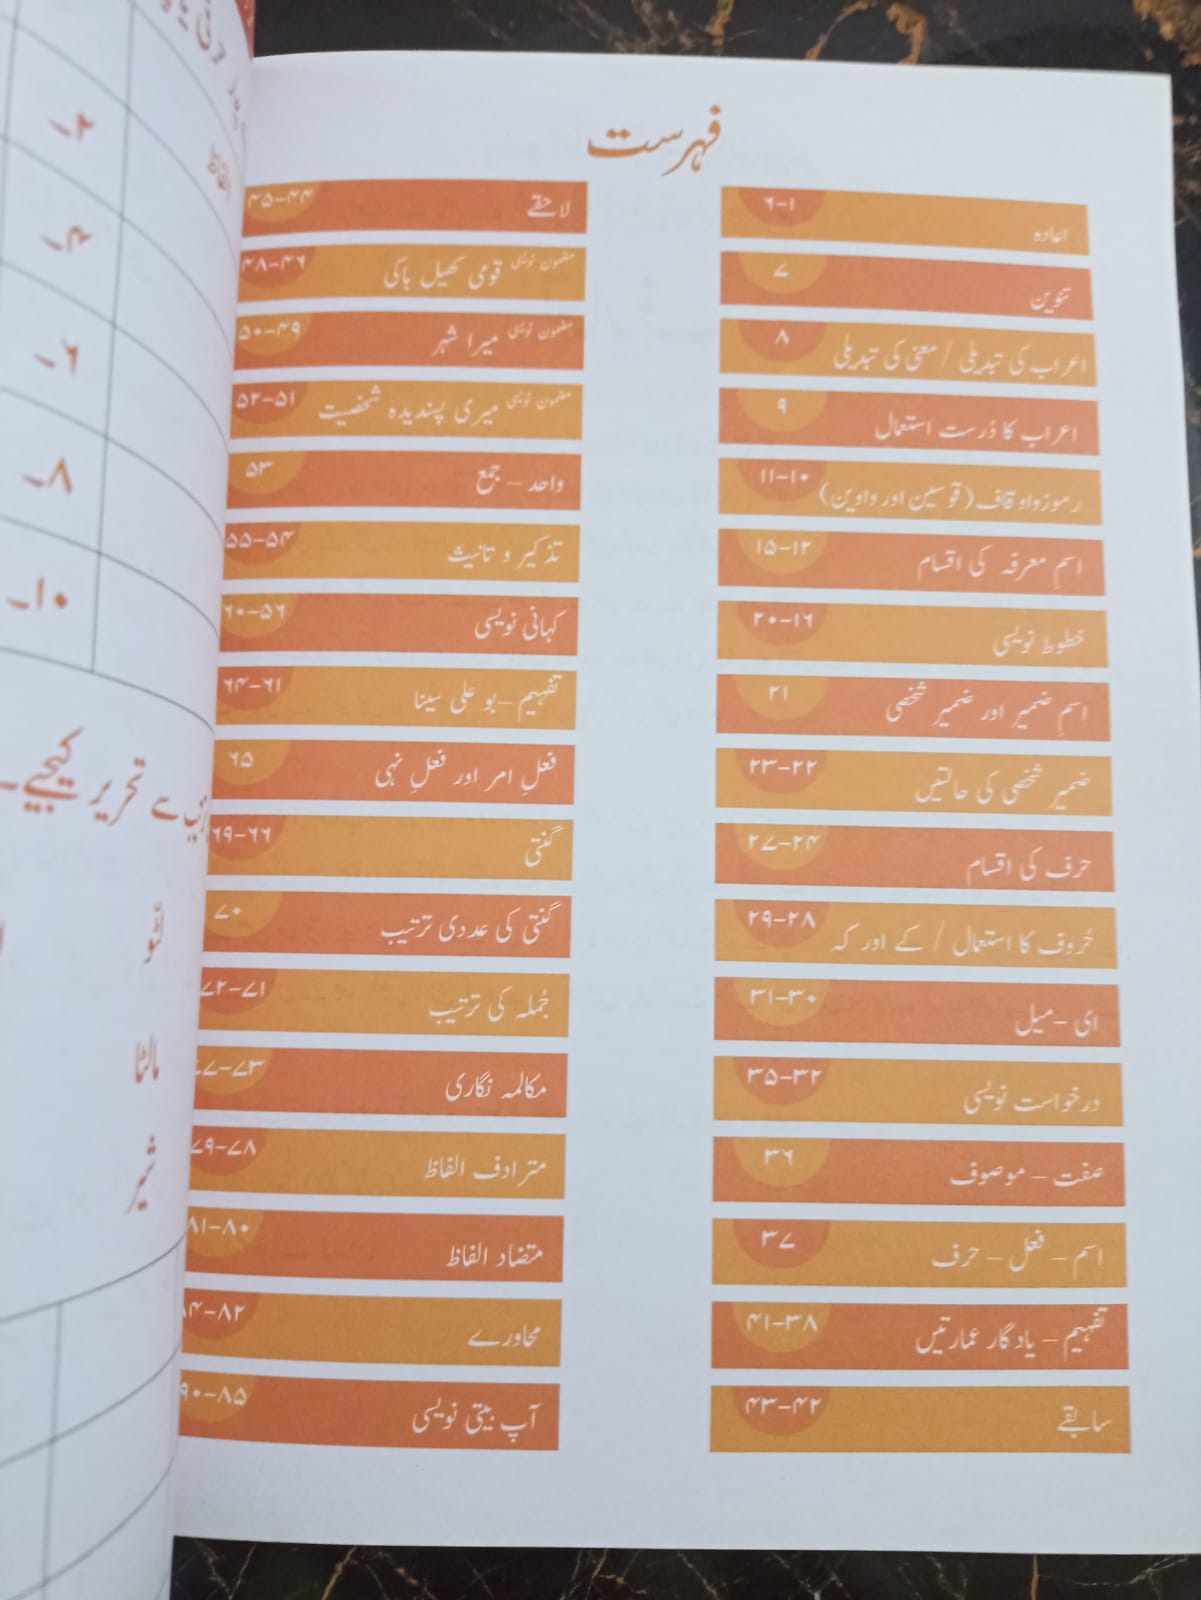 فہرست
اعادہ ۱-۶
تنوین ۷
اعراب کی تبدیلی / معنی کی تبدیلی ۸
اعراب کا دُرست استعمال ۹
رموزواوقاف (قوسین اور واوین) ۱۰-۱۱
اسمِ معرفہ کی اقسام ۱۲-۱۵
خطوط نویسی ۱۶-۲۰
اسمِ ضمیر اور ضمیر شخصی ۲۱
ضمیر شخصی کی حالتیں ۲۲-۲۳
حرف کی اقسام ۲۴-۲۷
حُروف کا استعمال / کے اور کہ ۲۸-۲۹
ای-میل ۳۰-۳۱
درخواست نویسی ۳۲-۳۵
صفت - موصوف ۳۶
اسم - فعل - حرف ۳۷
تفہیم - یادگار عمارتیں ۳۸-۴۱
سابقے ۴۲-۴۳
لاحقے ۴۴-۴۵
مضمون نویسی قومی کھیل ہاکی ۴۶-۴۸
مضمون نویسی میرا شہر ۴۹-۵۰
مضمون نویسی میری پسندیدہ شخصیت ۵۱-۵۲
واحد - جمع ۵۳
تذکیر و تانیث ۵۴-۵۵
کہانی نویسی ۵۶-۶۰
تفہیم - بو علی سینا ۶۱-۶۴
فعلِ امر اور فعلِ نہی ۶۵
گنتی ۶۶-۶۹
گنتی کی عددی ترتیب ۷۰
جُملہ کی ترتیب ۷۱-۷۲
مکالمہ نگاری ۷۳-۷۷
مترادف الفاظ ۷۸-۷۹
متضاد الفاظ ۸۰-۸۱
محاورے ۸۲-۸۴
آپ بیتی نویسی ۸۵-۹۰
الفاظ
۲-
۴-
۶-
۸-
۱۰-
سے تحریر کیجیے-
لٹّو
مالٹا
شیر